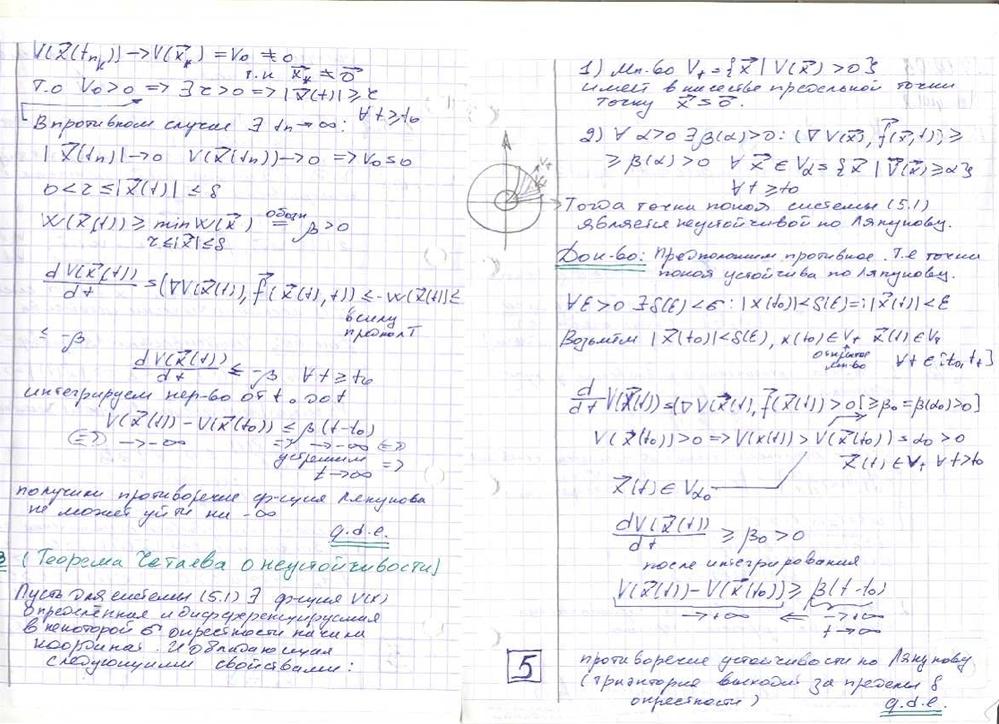 V(x⃗(tₙₖ)) → V(x⃗ₖ) = V₀ ≠ 0
т.к x⃗ₖ ≠ 0⃗
Т.О V₀ > 0 => ∃ r > 0 => |x⃗(t)| ≥ r
∀ t ≥ t₀
В противном случае ∃ tₙ → ∞ :
|x⃗(tₙ)| → 0 V(x⃗(tₙ)) → 0 => V₀ = 0
0 < r ≤ |x⃗(t)| ≤ δ
W(x⃗(t)) ≥ min W(x⃗) обозн = β > 0
r ≤ |x⃗| ≤ δ
dV(x⃗(t))/dt = (∇V(x⃗(t)), f⃗(x⃗(t), t)) ≤ -W(x⃗(t)) ≤
в силу
предпол Т
≤ -β
dV(x⃗(t))/dt ≤ -β ∀ t ≥ t₀
интегрируем нер-во от t₀ до t
V(x⃗(t)) - V(x⃗(t₀)) ≤ β(t-t₀)
(=>) → -∞ => → -∞ (=>)
устремим =>
t → ∞
получили противоречие ф-ция Ляпунова
не может уйти на -∞
q.d.e.
3 (Теорема Четаева о неустойчивости)
Пусть для системы (5.1) ∃ ф-ция V(x)
определённая и дифференцируемая
в некоторой σ окрестности начала
координат. И обладающая
следующими свойствами:
1) Мн-во V₊ = {x⃗ | V(x⃗) > 0}
имеет в качестве предельной точки
точку x⃗ = 0⃗.
2) ∀ α > 0 ∃ β(α) > 0 : (∇V(x⃗), f⃗(x⃗, t)) ≥
≥ β(α) > 0 ∀ x⃗ ∈ Vα = {x⃗ | V(x⃗) ≥ α}
∀ t ≥ t₀
Тогда точка покоя системы (5.1)
является неустойчивой по Ляпунову.
Док-во: Предположим противное. Т.е точка
покоя устойчива по Ляпунову.
∀ ε > 0 ∃ δ(ε) < σ : |x(t₀)| < δ(ε) =: |x⃗(t)| < ε
Возьмём |x⃗(t₀)| < δ(ε), x(t₀) ∈ V₊ x⃗(t) ∈ V₊
открытое
мн-во ∀ t ∈ [t₀, t₊]
d/dt V(x⃗(t)) = (∇V(x⃗(t), f⃗(x⃗(t)) > 0 [≥ β₀ = β(α₀) > 0]
V(x⃗(t₀)) > 0 => V(x(t)) > V(x⃗(t₀)) = α₀ > 0
x⃗(t) ∈ V₊ ∀ t > t₀
x⃗(t) ∈ Vα₀
dV(x⃗(t))/dt ≥ β₀ > 0
после интегрирования
V(x⃗(t)) - V(x⃗(t₀)) ≥ β(t-t₀)
→ +∞ <= → +∞
t → ∞
5
противоречие устойчивости по Ляпунову
(траектория выходит за пределы δ
окрестности)
q.d.e.